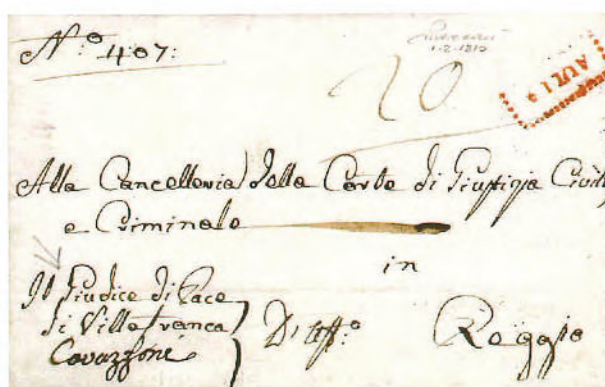 N.º 407:
1-2-1810
20
Alla Cancelleria della Corte di Giustizia Civile
e Criminale
in
Il Giudice di Pace
di Villafranca
Cavazzoni
D'Uff.º
Reggio